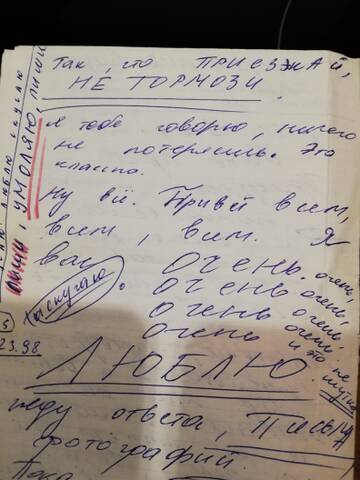 Так, что ПРИЕЗЖАЙ,
НЕ ТОРМОЗИ.
Я тебе говорю, ничего
не потеряешь. Это
классно.
Ну всё. Привет всем,
всем, всем. Я
вас ОЧЕНЬ. очень,
ОЧЕНЬ очень,
очень очень.
очень очень.
и это не шутка
ЛЮБЛЮ.
жду ответа, ПИСЬМА
фотографий.
Пока
(Я скучаю)
пиши, УМОЛЯЮ, пиши
люблю скучаю
5
23.98